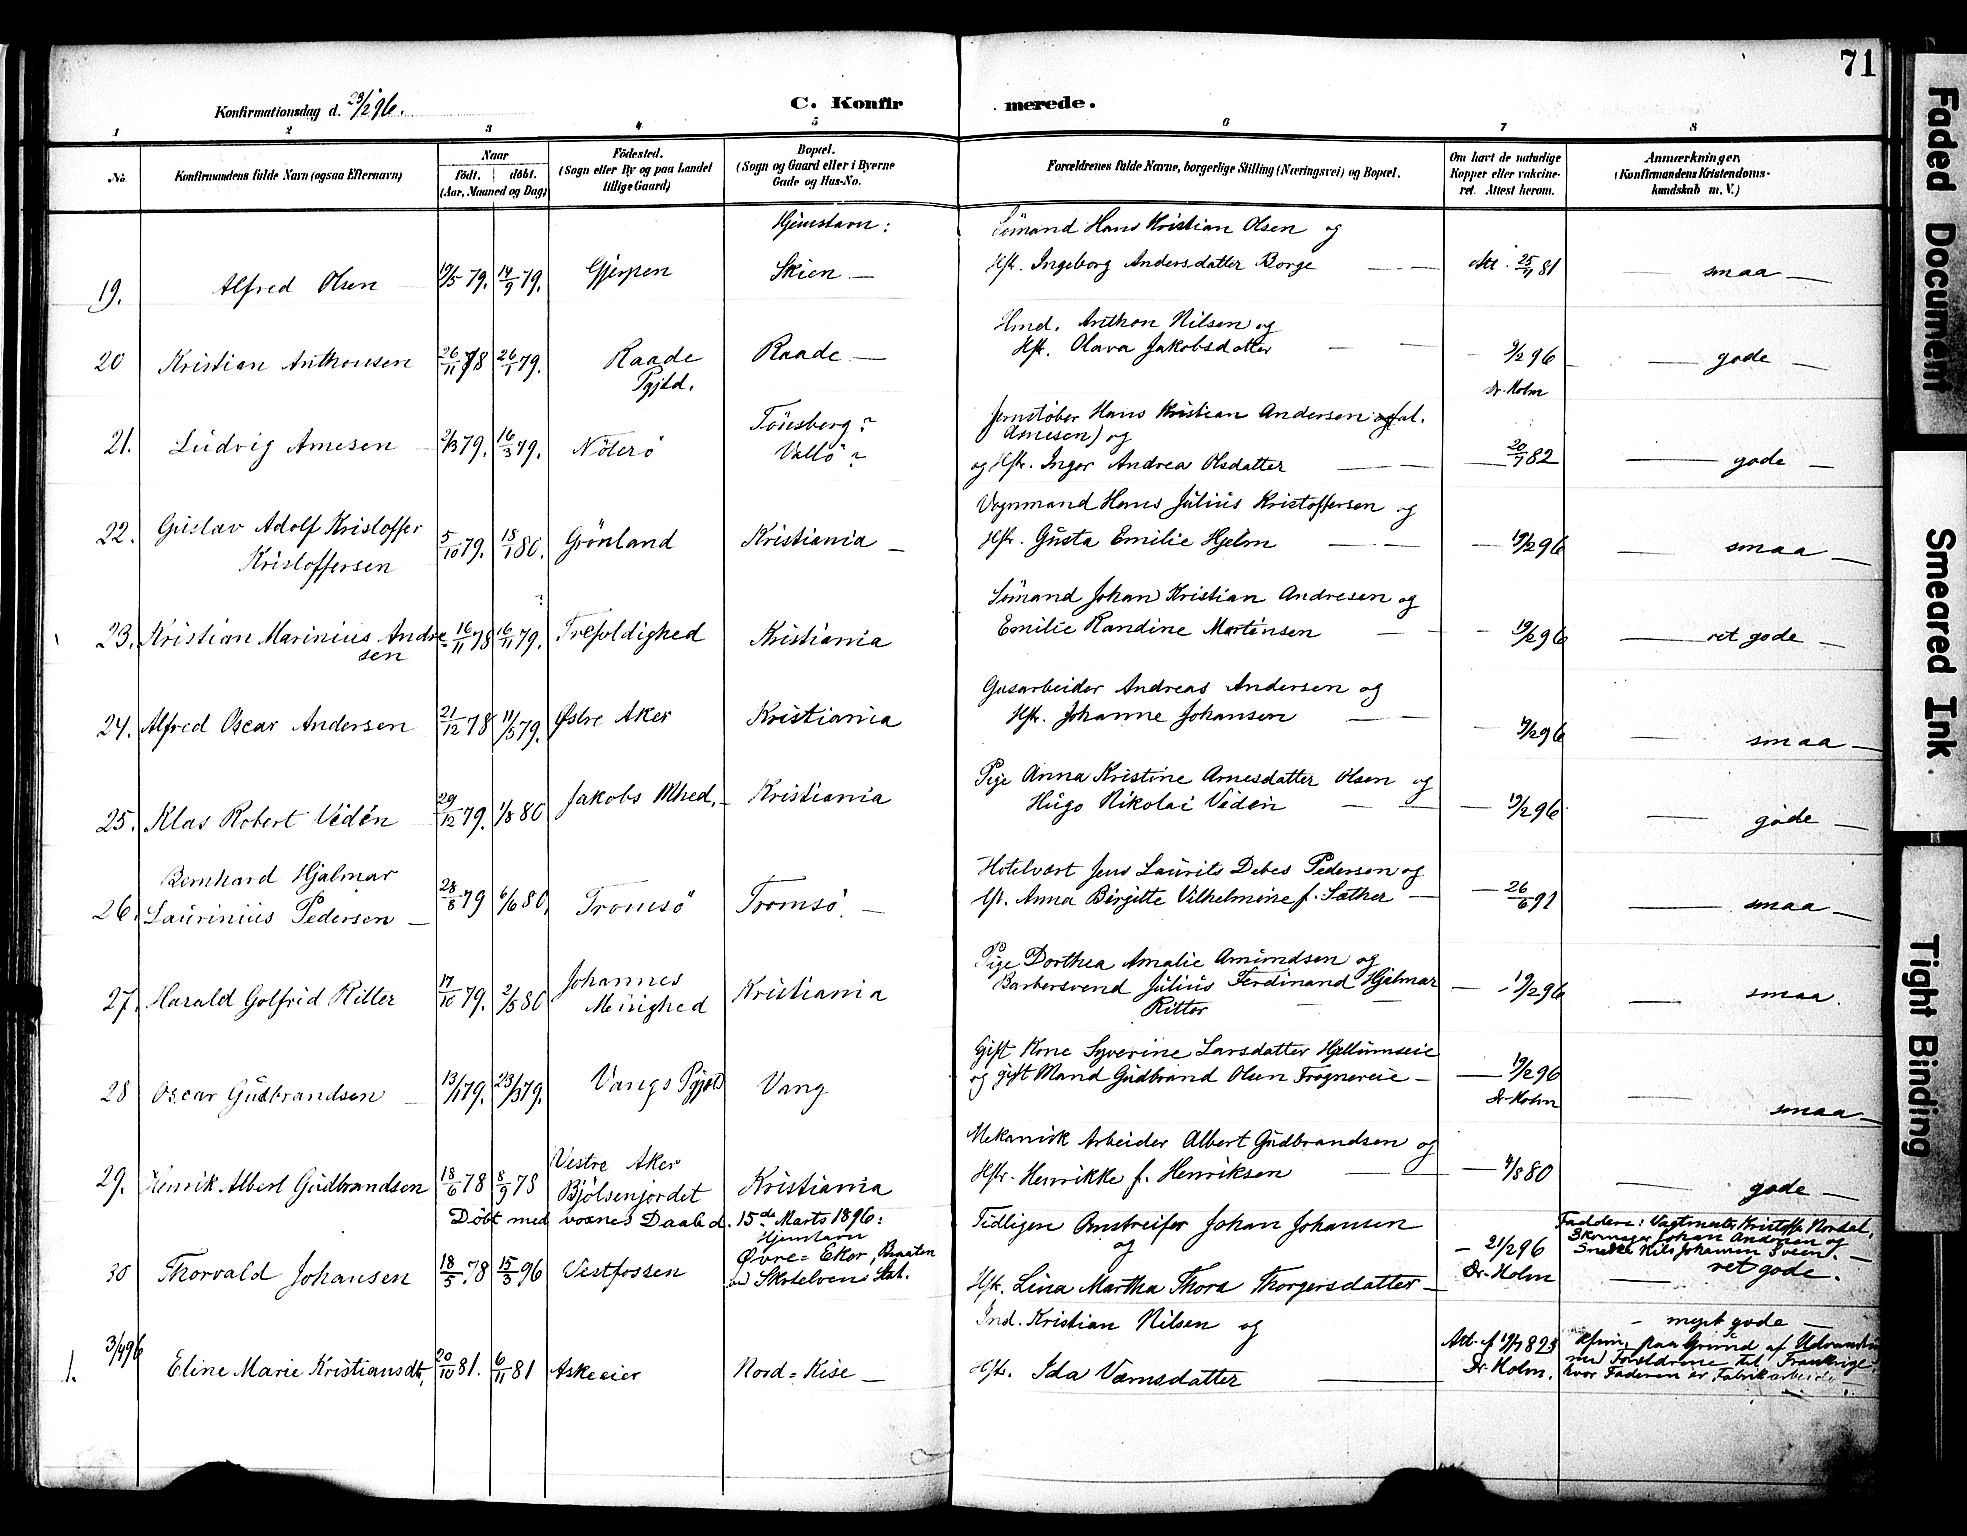 71
Konfirmationsdag d. 23/2 96.
C. Konfirmerede.
1 2 3 4 5 6 7 8
No.
Konfirmandens fulde Navn (ogsaa Efternavn)
Naar
født. døbt.
(Aar, Maaned og Dag)
Fødested.
(Sogn eller By og paa Landet
tillige Gaard)
Bopæl.
(Sogn og Gaard eller i Byerne
Gade og Hus-No.
Forældrenes fulde Navne, borgerlige Stilling (Næringsvei) og Bopæl.
Om havt de naturlige
Kopper eller vakcine-
ret. Attest herom.
Anmærkninger.
(Konfirmandens Kristendoms-
kundskab m. V.)
Hjemstavn:
Sömand Hans Kristian Olsen og
19. Alfred Olsen 19/5 79. 14/9 79. Gjerpen Skien — Hfr. Ingeborg Andersdatter Borge — Att. 25/1 81 — smaa —
Hmd. Anthon Nilsen og
20 Kristian Anthonsen 26/11 78 26/1 79. Raade Raade — Hfr. Olava Jakobsdatter — 9/2 96 — gode —
Pgjld. Dr. Holm
Tönsberg? Jernstöber Hans Kristian Andersen
Arnesen) og
21. Ludvig Arnesen 2/3 79. 16/3 79. Nöterö Vallö? og Hfr. Inger Andrea Olsdatter — 20/7 82 — gode —
22. Gustav Adolf Kristoffer Vognmand Hans Julius Kristoffersen og
Kristoffersen 5/10 79. 18/1 80. Grönland Kristiania — Hfr. Gusta Emilie Hjelm — 19/2 96 — smaa —
Sömand Johan Kristian Andresen og
23. Kristian Marinius Andre- 16/11 78 16/11 79. Trefoldighed Kristiania Emilie Randine Martinsen — 19/2 96 — ret gode —
sen
Gasarbeider Andreas Andersen og
24. Alfred Oscar Andersen 21/12 78 11/5 79. Østre Aker Kristiania Hfr. Johanne Johansen — 9/2 96 — smaa —
Pige Anna Kristine Arnesdatter Olsen og
25. Klas Robert Vidén 29/12 79. 1/8 80 Jakobs Mhed. — Kristiania Hugo Nikolai Vidén — 19/2 96 — gode —
Bernhard Hjalmar Hotelvært Jens Laurits Debes Pedersen og
26. Laurinius Pedersen — 28/8 79 6/6 80. Tromsö Tromsö. — Hfr. Anna Birgitte Vilhelmine f. Sæther — 26/6 91 — smaa —
Pige Dorthea Amalie Amundsen og
27. Harald Golfrid Ritter 17/10 79. 2/5 80 Johannes Menighed Kristiania Barbersvend Julius Ferdinand Hjalmar — 19/2 96 — smaa.
Ritter
Gift Kone Syverine Larsdatter Hjellumseie
28 Oscar Gudbrandsen — 13/1 79. 23/3 79. Vangs Pgjld Vang og gift Mand Gudbrand Olsen Frognereie — 19/2 96 — smaa —
Dr. Holm
Mekanisk Arbeider Albert Gudbrandsen og
29. Henrik Albert Gudbrandsen 18/6 78 8/9 78 Vestre Aker Bjölsenjordet Kristiania Hfr. Henrikke f. Henriksen — 4/8 80 gode —
Döbt med voxnes Daab d. 15de Marts 1896:
Hjemstavn
Tidligere Omstreifer Johan Johansen
og
Faddere: Vagtmester Kristoffer Nordal,
Skomager Johan Andersen og
Snedker Nils Johansen Sveen. —
30 Thorvald Johansen 18/5 78 15/3 96 Vestfossen Övre=Eker, Braaten
v. Skotselvens Stat. Hfr. Lina Martha Thora Thorgersdatter — 21/2 96
Dr. Holm — ret gode.
3/4 96 Ind. Kristian Nilsen og — meget gode —
1. Eline Marie Kristiansdtr. 20/10 81. 6/11 81 Askeeier Nord=Kise — Hfr. Ida Værnsdatter —
Dr. Holm.
paa Grund af
med Forældrene til Frankrige,
hvor Faderen er Fabrikarbeider
Faded Document
Smeared Ink
Tight Binding